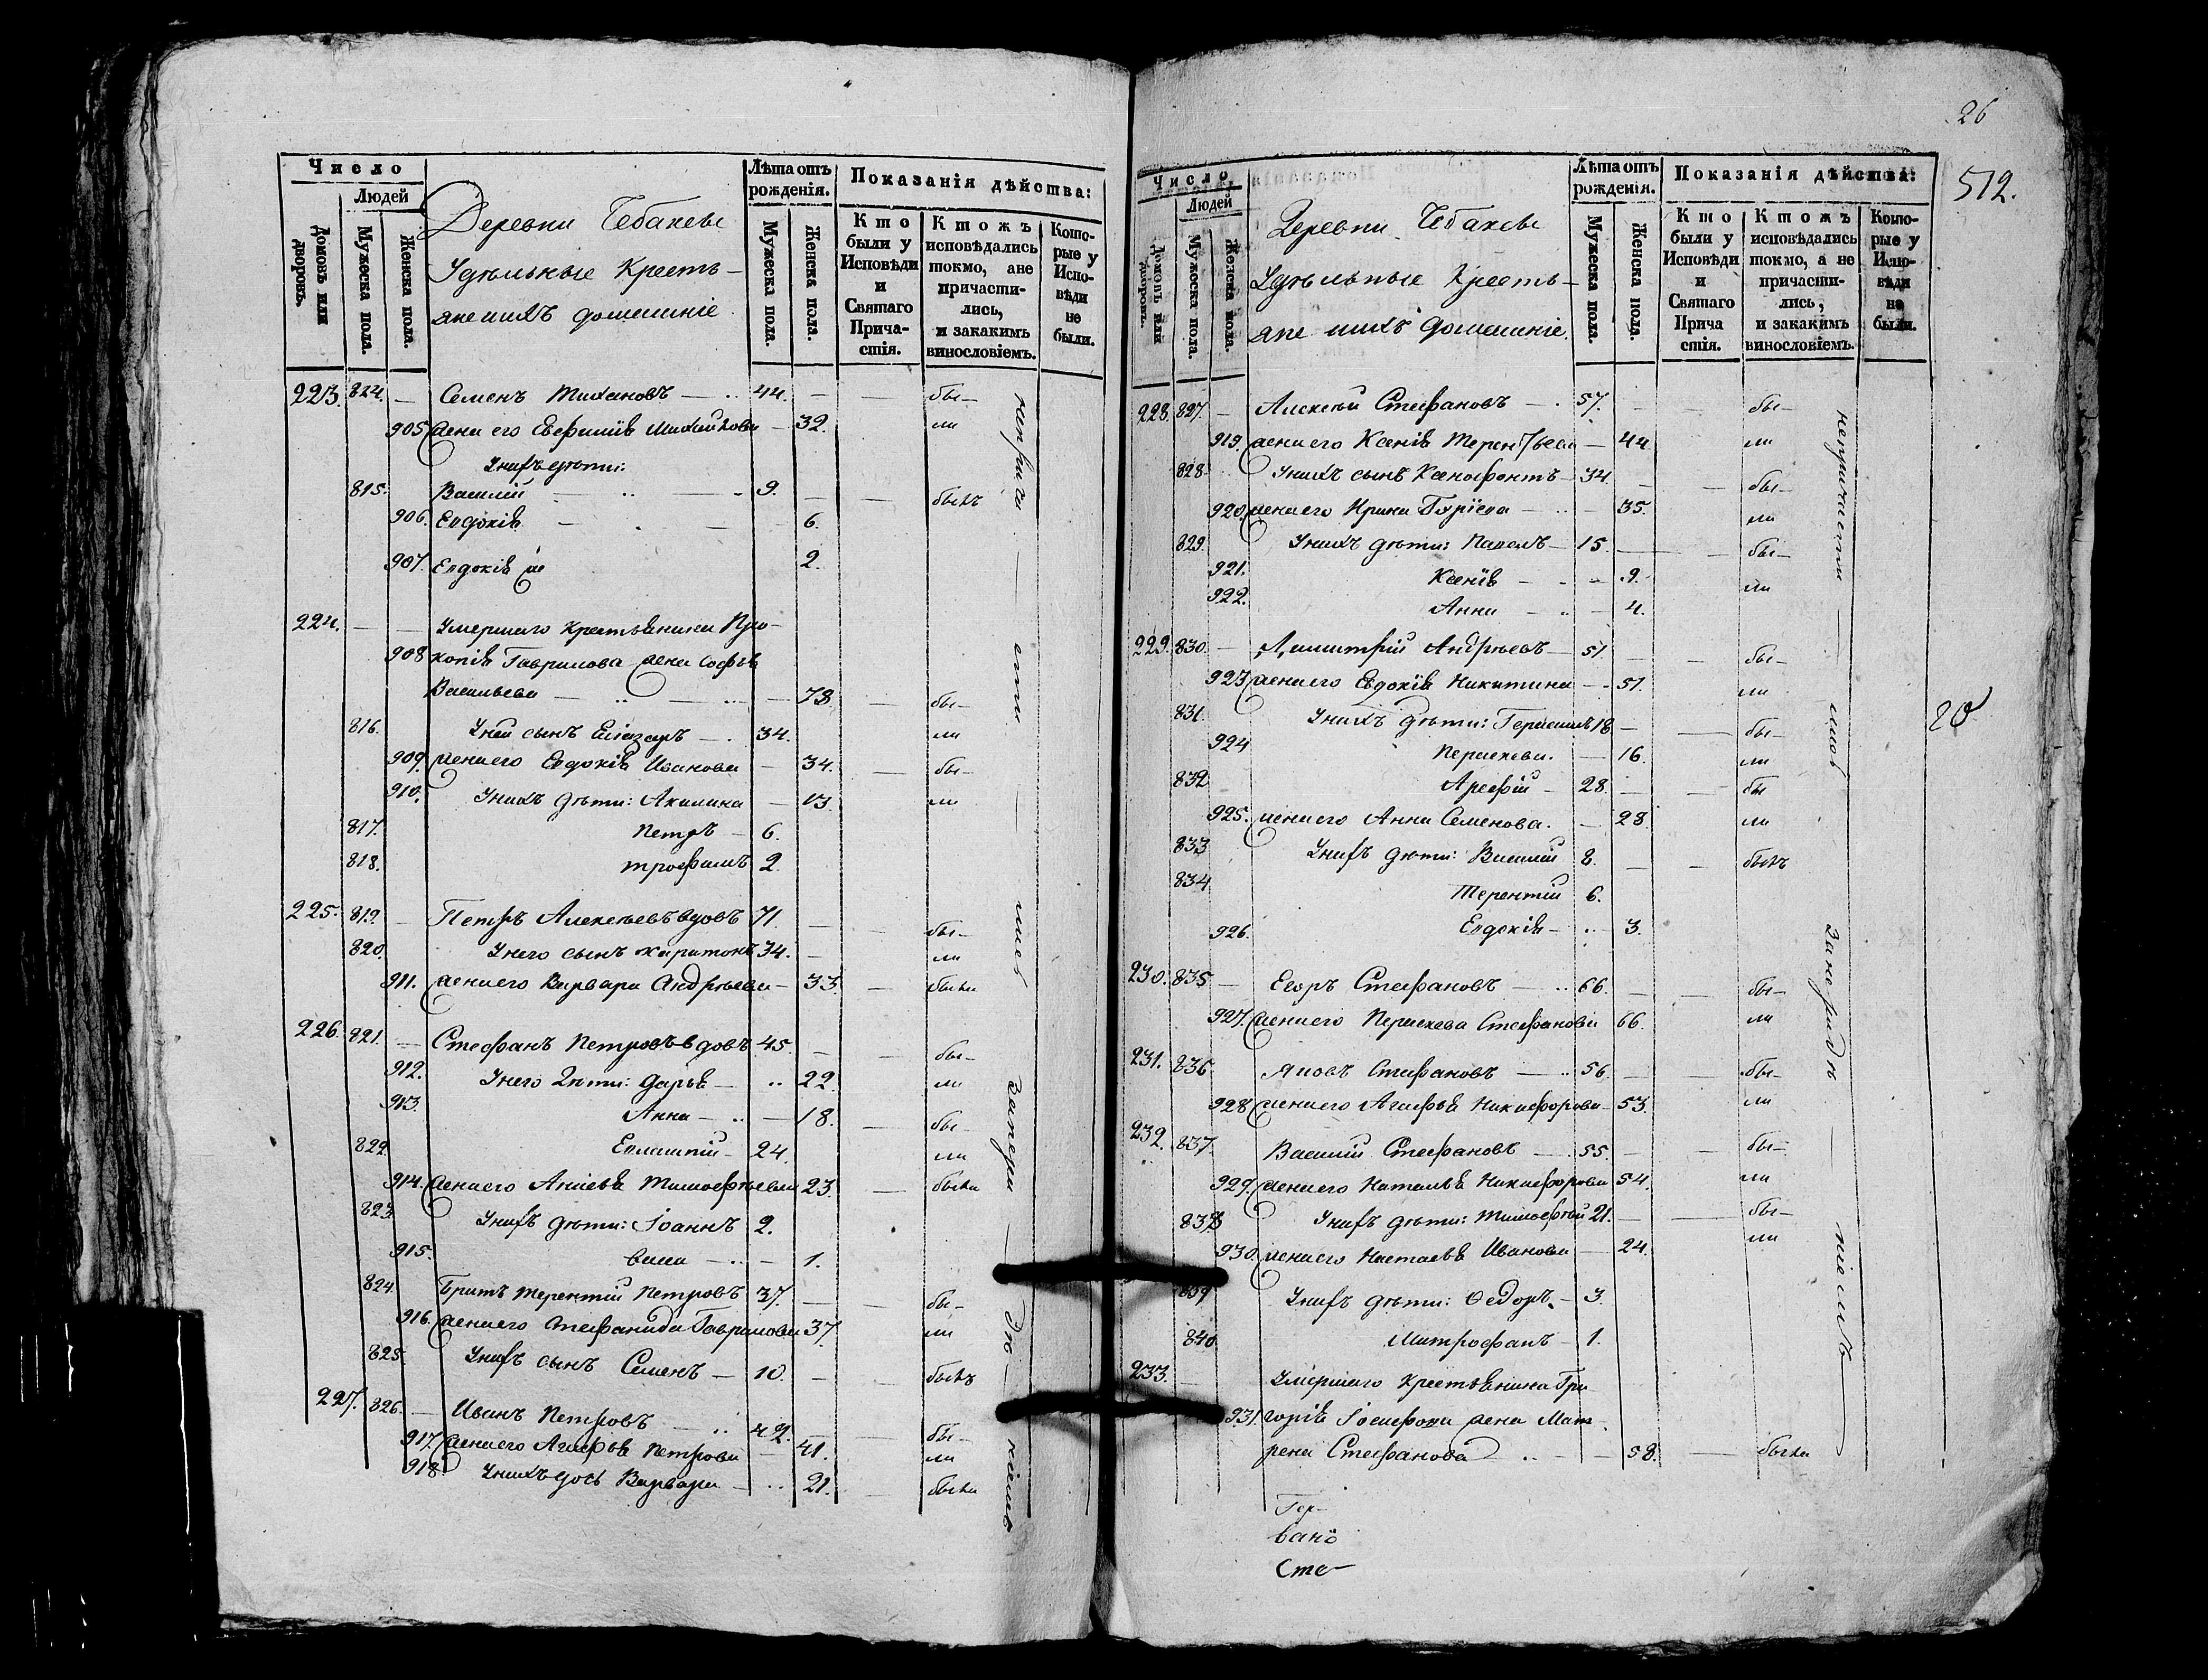 Число
Людей
Домовъ или дворовъ.
Мужеска пола.
Женска пола.
Деревни Чебаксы
Удѣльные Кресть-
яне ихъ домашніе
Лѣта отъ рожденія.
Мужеска пола.
Женска пола.
Показанія дѣйства:
Кто были у Исповѣди и Святаго Прича-стія.
Ктожъ исповѣдались токмо, а не причасти-лись, и закакимъ винословіемъ.
Кото-рые у Испо-вѣди не были.
223. 814. — Семенъ — 44. — — бы-
905 жена его Евфимія — 32. ли
У нихъ дѣти:
815. Василій — 9. — — былъ
906. Евдокія — 6.
907. Евдокія же 2.
224. — — Умершаго крестьянина Про-
908 копія Гаврилова жена Софья
Васильева — 73. — бы-
816. У ней сынъ Елеазаръ — 34. ли
909. жена его Евдокія Иванова — 34. — бы-
910. У нихъ дѣти: Акилина — 13. ли
817. Петръ — 6.
818. Трофимъ 2.
225. 819. — Петръ Алексѣевъ вдовъ 71. — — бы-
820. У него сынъ Харитонъ 34. — ли
911. жена его Варвара Андрѣева — 33. — была
226. 821. — Стефанъ Петровъ вдовъ 45. — — бы-
912. У него дѣти: Дарья — 22. ли
913. Анна — 18. — бы-
822. Евлампій — 24. ли
914. жена его Анисья Тимофѣева 23. — была
823. У нихъ дѣти: Іоаннъ 2.
915. — 1.
824. Братъ Терентій Петровъ 37. — — бы-
916. жена его Стефанида Гаврилова 37. ли
825. У нихъ сынъ Семенъ — 10. — — былъ
227. 826. — Иванъ Петровъ — 42. — бы-
917. жена его Агафья Петрова — 41. ли
918. У нихъ дочь Варвара — 21. — была
26
512.
Число
Людей
Домовъ или дворовъ.
Мужеска пола.
Женска пола.
Деревни Чебаксы
Удѣльные Кресть-
яне ихъ домашніе.
Лѣта отъ рожденія.
Мужеска пола.
Женска пола.
Показанія дѣйства:
Кто были у Исповѣди и Святаго Прича стія.
Ктожъ исповѣдались токмо, а не причасти-лись, и закакимъ винословіемъ.
Кото-рые у Испо-вѣди не были.
228. 827. — Алексѣй Стефановъ — 57. — — бы-
919. жена его Ксенія Терентьева — 44 ли
828. У нихъ сынъ Ксенофонтъ — 34. — — бы-
920. жена его Ирина — 35. ли
829. У нихъ дѣти: Павелъ — 15. — — бы-
921. Ксенія — 9. ли
922. Анна — 4.
229. 830. — Димитрій Андрѣевъ — 51. — — бы-
923 жена его Евдокія Никитина — 51. ли
831. У нихъ дѣти: Герасимъ 18 — — бы-
924 Параскева. — 16. ли
832 Арефій — 28. — — бы
925. жена его Анна Семенова. — 28. ли
833 У нихъ дѣти: Василій 8. — — былъ
834. Терентій 6.
926. Евдокія — 3.
20
230. 835 — Егоръ Стефановъ — 66. — — бы-
927. жена его Параскева Стефанова 66. ли
231. 836. Яковъ Стефановъ — 56. — — бы-
928 жена его Агафья Никифорова — 53. ли
232. 837. Василій Стефановъ — 55. — — бы-
929. жена его Наталья Никифорова 54. ли
838 У нихъ дѣти: Тимофѣй 21. — — бы-
930. жена его Настасья Иванова — 24. ли
839 У нихъ дѣти: Ѳедоръ — 3.
840 Митрофанъ — 1.
233. — Умершаго крестьянина Гри
931. горія Іосифова жена Мат
рена Стефанова — 58. — была